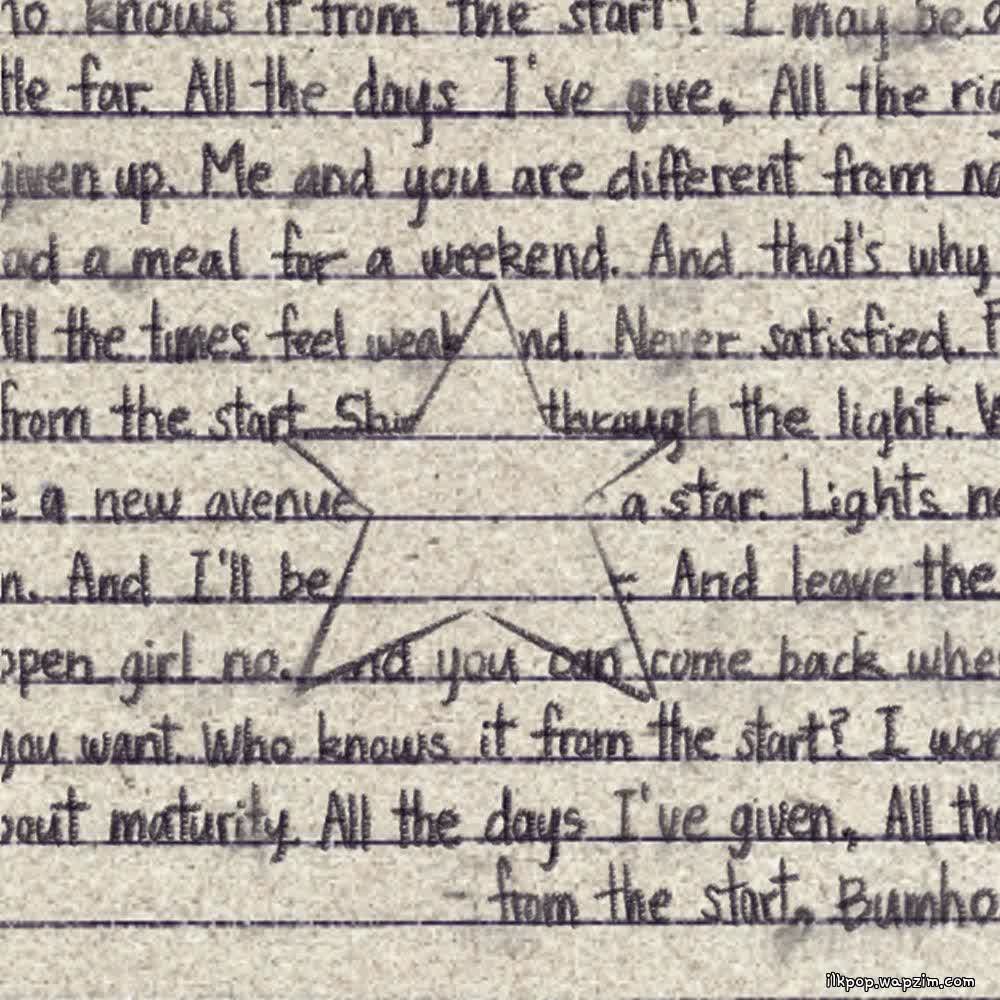 no knows it from the start? I may be a
ttle far. All the days I've give, All the rig
given up. Me and you are different from no
ad a meal for a weekend. And that's why
All the times feel weak nd. Never satisfied.
from the start Shi through the light.
e a new avenue a star. Lights no
n. And I'll be r. And leave the
open girl no. And you can come back whe
you want. Who knows it from the start? I won
bout maturity. All the days I've given, All th
- from the start, Bumho
ilkpop.wapzim.com